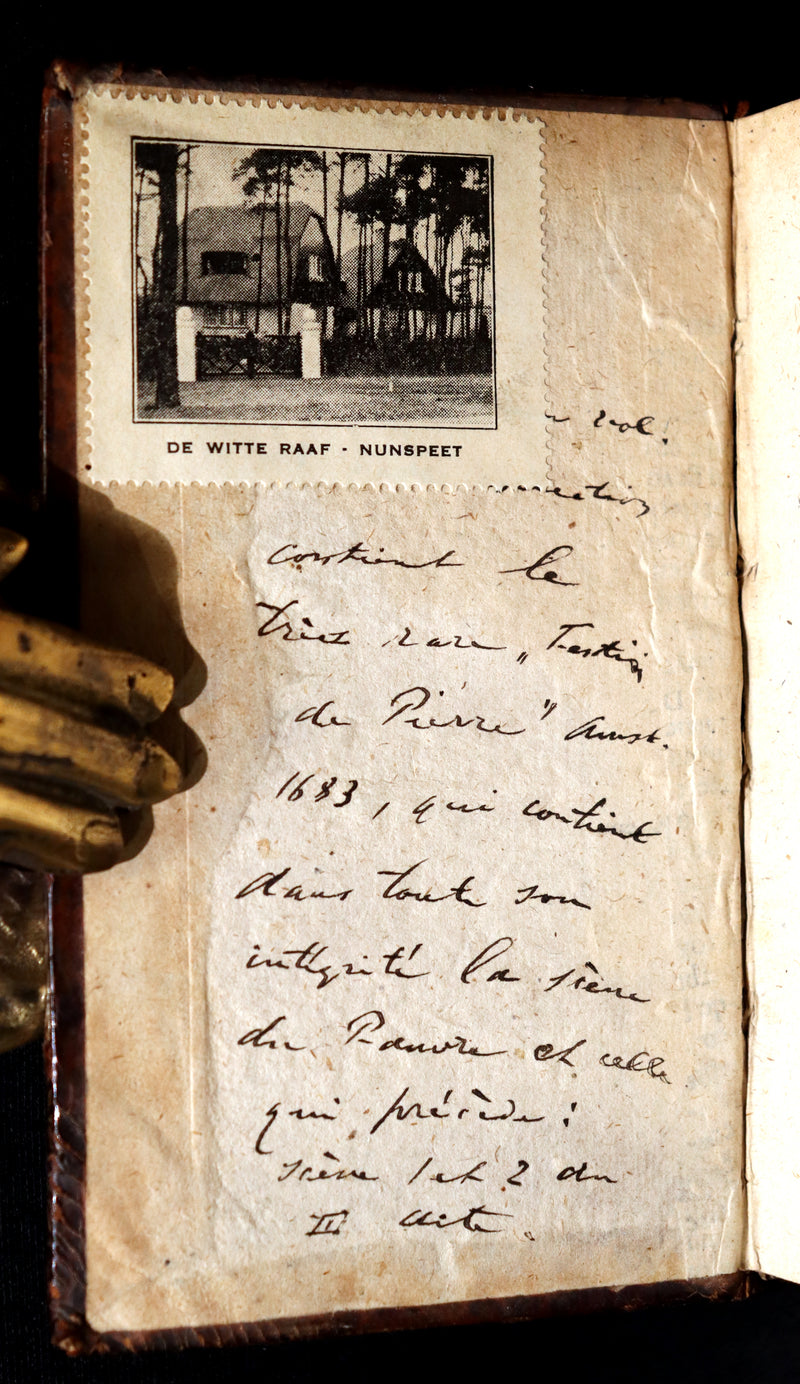 DE WITTE RAAF · NUNSPEET
vol.
contient le
très rare „Festin
de Pierre" Amst.
1683, qui contient
dans toute son
intégrité la scène
du Pauvre et celle
qui précède:
scène 1 et 2 du
III acte.